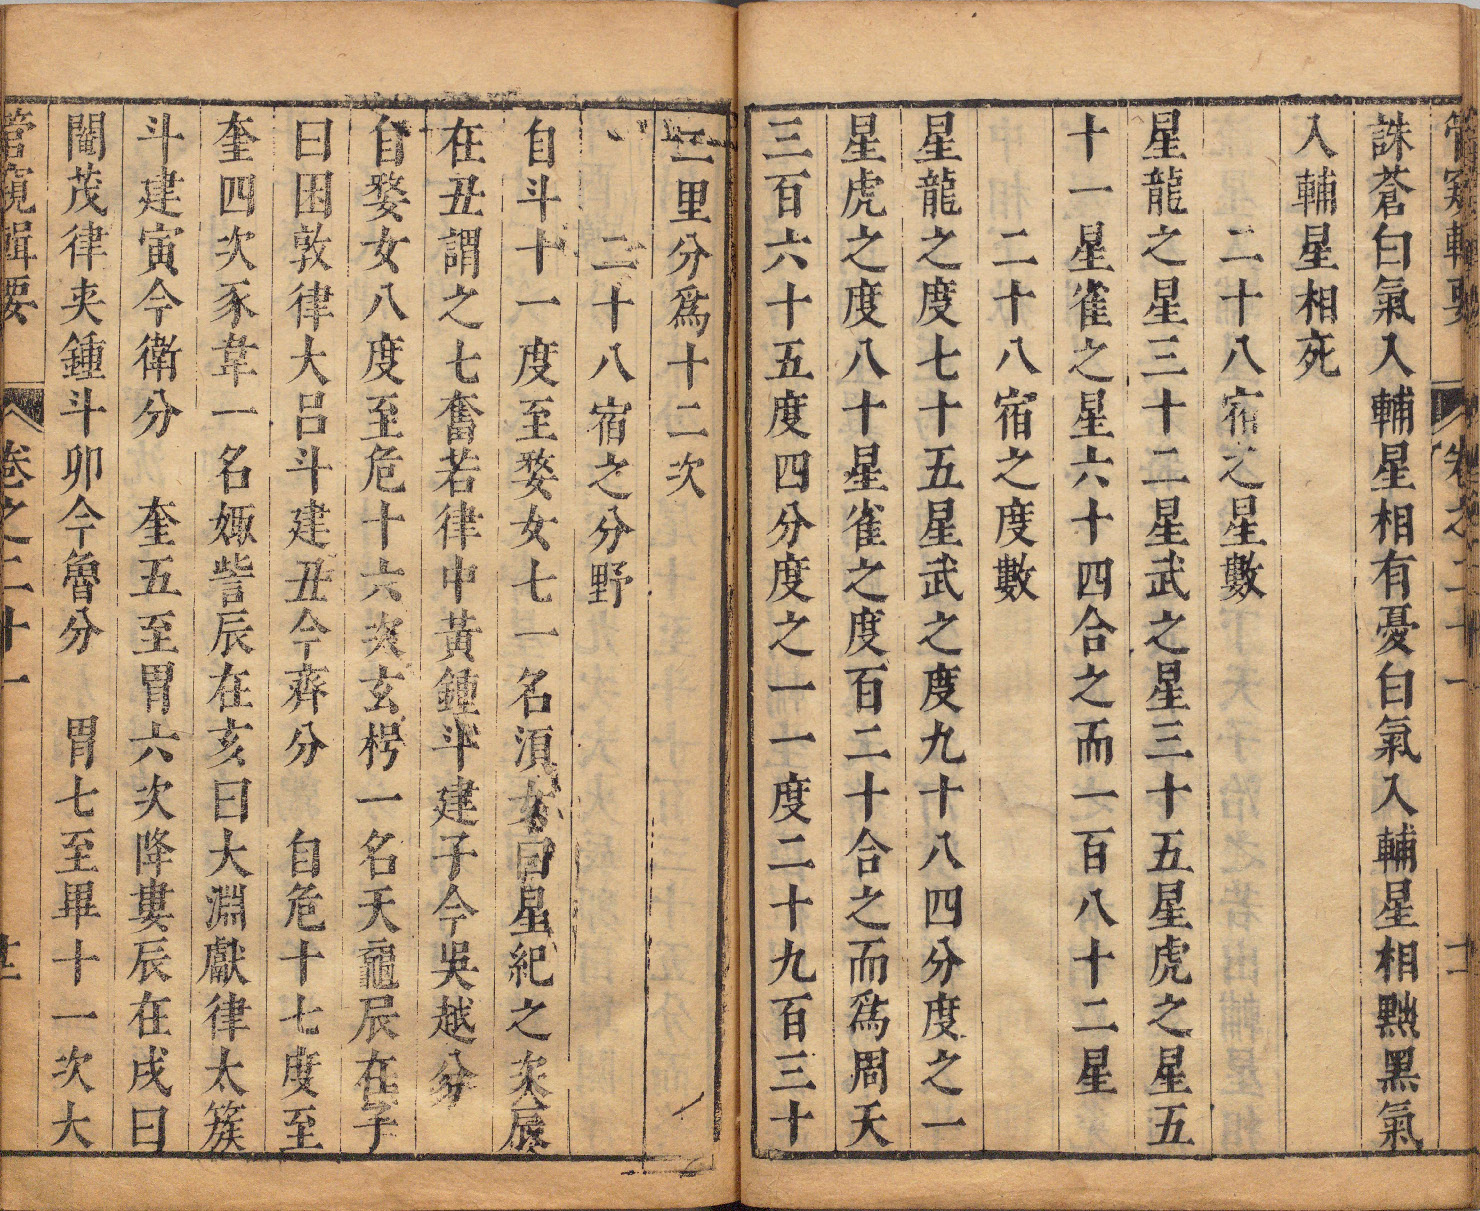 管窺輯要 卷之二十一
誅蒼白氣入輔星相有憂白氣入輔星相黜黑氣
入輔星相死
二十八宿之星數
星龍之星三十二星武之星三十五星虎之星五
十一星雀之星六十四合之而一百八十二星
二十八宿之度數
星龍之度七十五星武之度九十八四分度之一
星虎之度八十星雀之度百二十合之而爲周天
三百六十五度四分度之一一度二十九百三十
二里分爲十二次
二十八宿之分野
自斗十一度至婺女七一名須女曰星紀之次辰
在丑謂之七奮若律中黃鍾斗建子今吳越分
自婺女八度至危十六次玄枵一名天黿辰在子
曰困敦律大呂斗建丑今齊分 自危十七度至
奎四次豕韋一名娵訾辰在亥曰大淵獻律太簇
斗建寅今衛分 奎五至胃六次降婁辰在戌曰
閹茂律夾鍾斗卯今魯分 胃七至畢十一次大
管窺輯要 卷之二十一